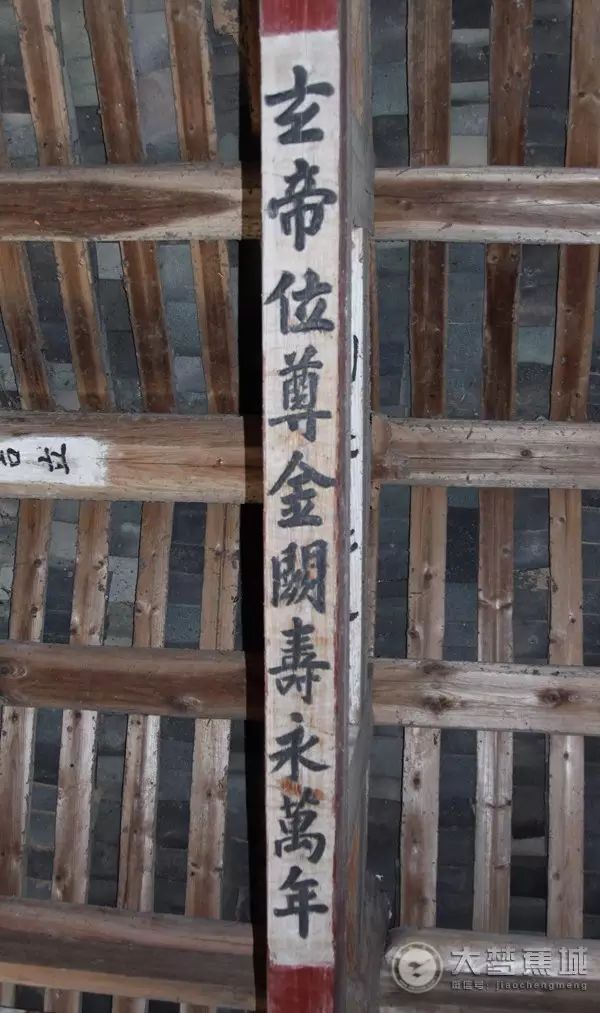 玄帝位尊金闕壽永萬年
大梦蕉城
微信号：jiaochengmeng